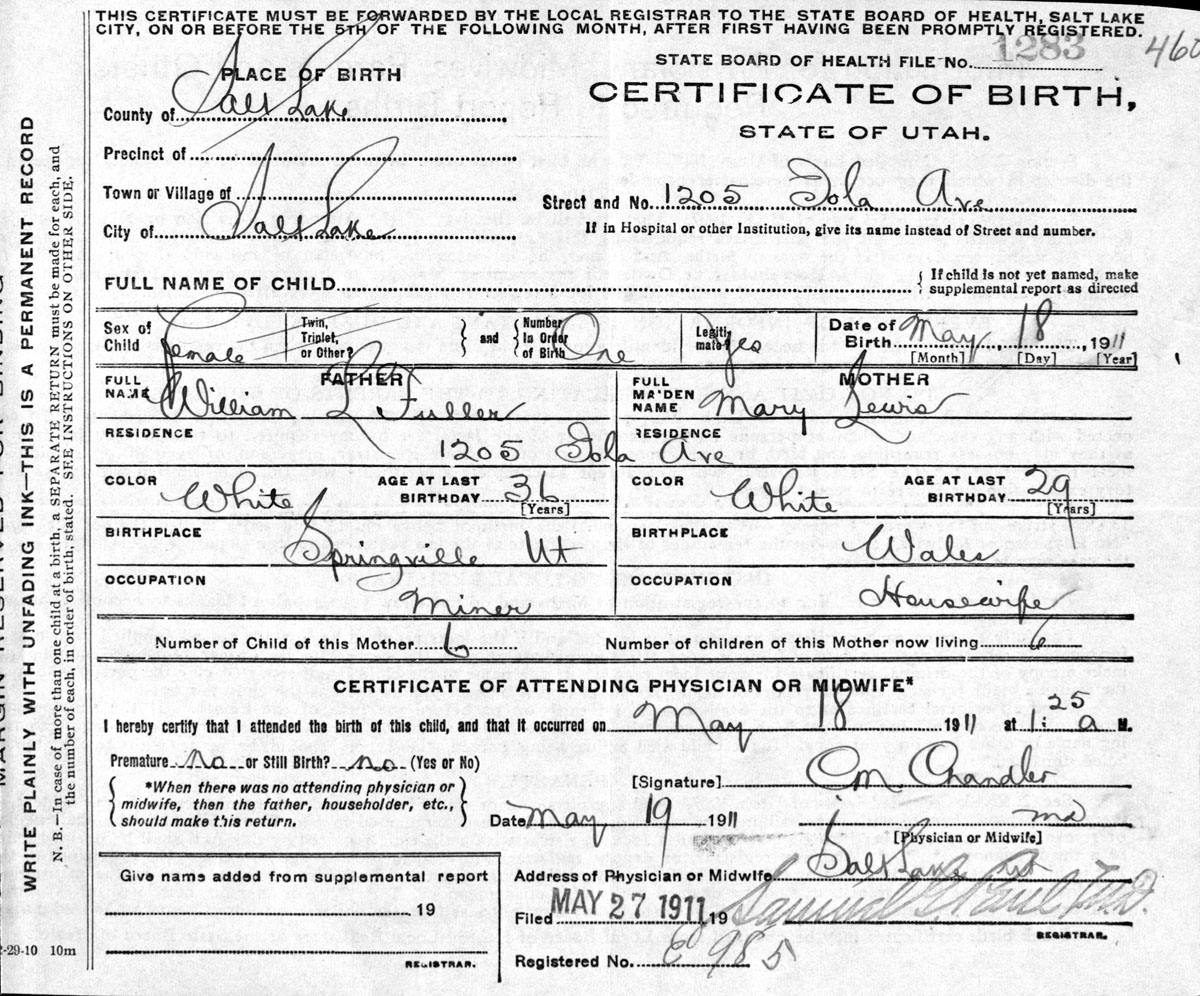 THIS CERTIFICATE MUST BE FORWARDED BY THE LOCAL REGISTRAR TO THE STATE BOARD OF HEALTH, SALT LAKE
CITY, ON OR BEFORE THE 5TH OF THE FOLLOWING MONTH, AFTER FIRST HAVING BEEN PROMPTLY REGISTERED.
STATE BOARD OF HEALTH FILE NO. 1283 460
PLACE OF BIRTH
CERTIFICATE OF BIRTH,
STATE OF UTAH.
County of Salt Lake
Precinct of
Town or Village of
Street and No. 1205 Iola Ave
City of Salt Lake
If in Hospital or other Institution, give its name instead of Street and number.
FULL NAME OF CHILD
{ If child is not yet named, make
supplemental report as directed
Sex of Child Female
Twin, Triplet, or Other?
} and {
Number In Order of Birth One
Legitimate? Yes
Date of Birth May 18, 1911
[Month] [Day] [Year]
FATHER
FULL NAME William L Fuller
MOTHER
FULL MAIDEN NAME Mary Lewis
RESIDENCE 1205 Iola Ave
RESIDENCE
COLOR White AGE AT LAST BIRTHDAY 36 [Years]
COLOR White AGE AT LAST BIRTHDAY 29 [Years]
BIRTHPLACE Springville Ut
BIRTHPLACE Wales
OCCUPATION Miner
OCCUPATION Housewife
Number of Child of this Mother 6 Number of children of this Mother now living 6
CERTIFICATE OF ATTENDING PHYSICIAN OR MIDWIFE*
I hereby certify that I attended the birth of this child, and that it occurred on May 18 1911 at 1:25 a M.
Premature No or Still Birth? No (Yes or No)
[Signature] CM Chandler
{ *When there was no attending physician or
midwife, then the father, householder, etc.,
should make this return. }
Date May 19 1911 md
[Physician or Midwife]
Address of Physician or Midwife Salt Lake Ut
Give name added from supplemental report
19
REGISTRAR.
Filed MAY 27 1911 19 Samuel G. Paul M.D.
REGISTRAR.
Registered No. E 985
WRITE PLAINLY WITH UNFADING INK—THIS IS A PERMANENT RECORD
N. B.—In case of more than one child at a birth, a SEPARATE RETURN must be made for each, and
the number of each, in order of birth, stated. SEE INSTRUCTIONS ON OTHER SIDE.
-29-10 10m